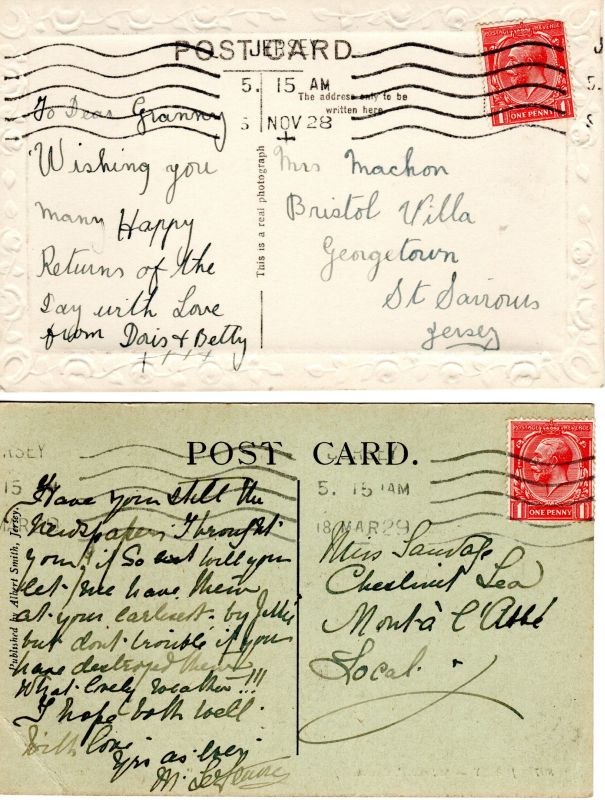 POST CARD
JERSEY
5. 15 AM
5 NOV 28
The address only to be
written here
This is a real photograph
POSTAGE REVENUE
ONE PENNY
To Dear Granny
Wishing you
many Happy
Returns of the
Day with Love
from Doris & Betty
++++
Mrs Machon
Bristol Villa
Georgetown
St Saviours
Jersey
POST CARD.
JERSEY
5. 15 AM
18 MAR 29
POSTAGE REVENUE
ONE PENNY
Published by Albert Smith, Jersey.
Have you still the
Newspapers I brought
you, if so will you
let me have them
at your earliest by
but dont trouble if you
have destroyed them
What lovely weather!!!
I hope both well.
With love
Yrs as ever
M.
Miss
Chestnut Lea
Mont-à l'Abbé
Local.